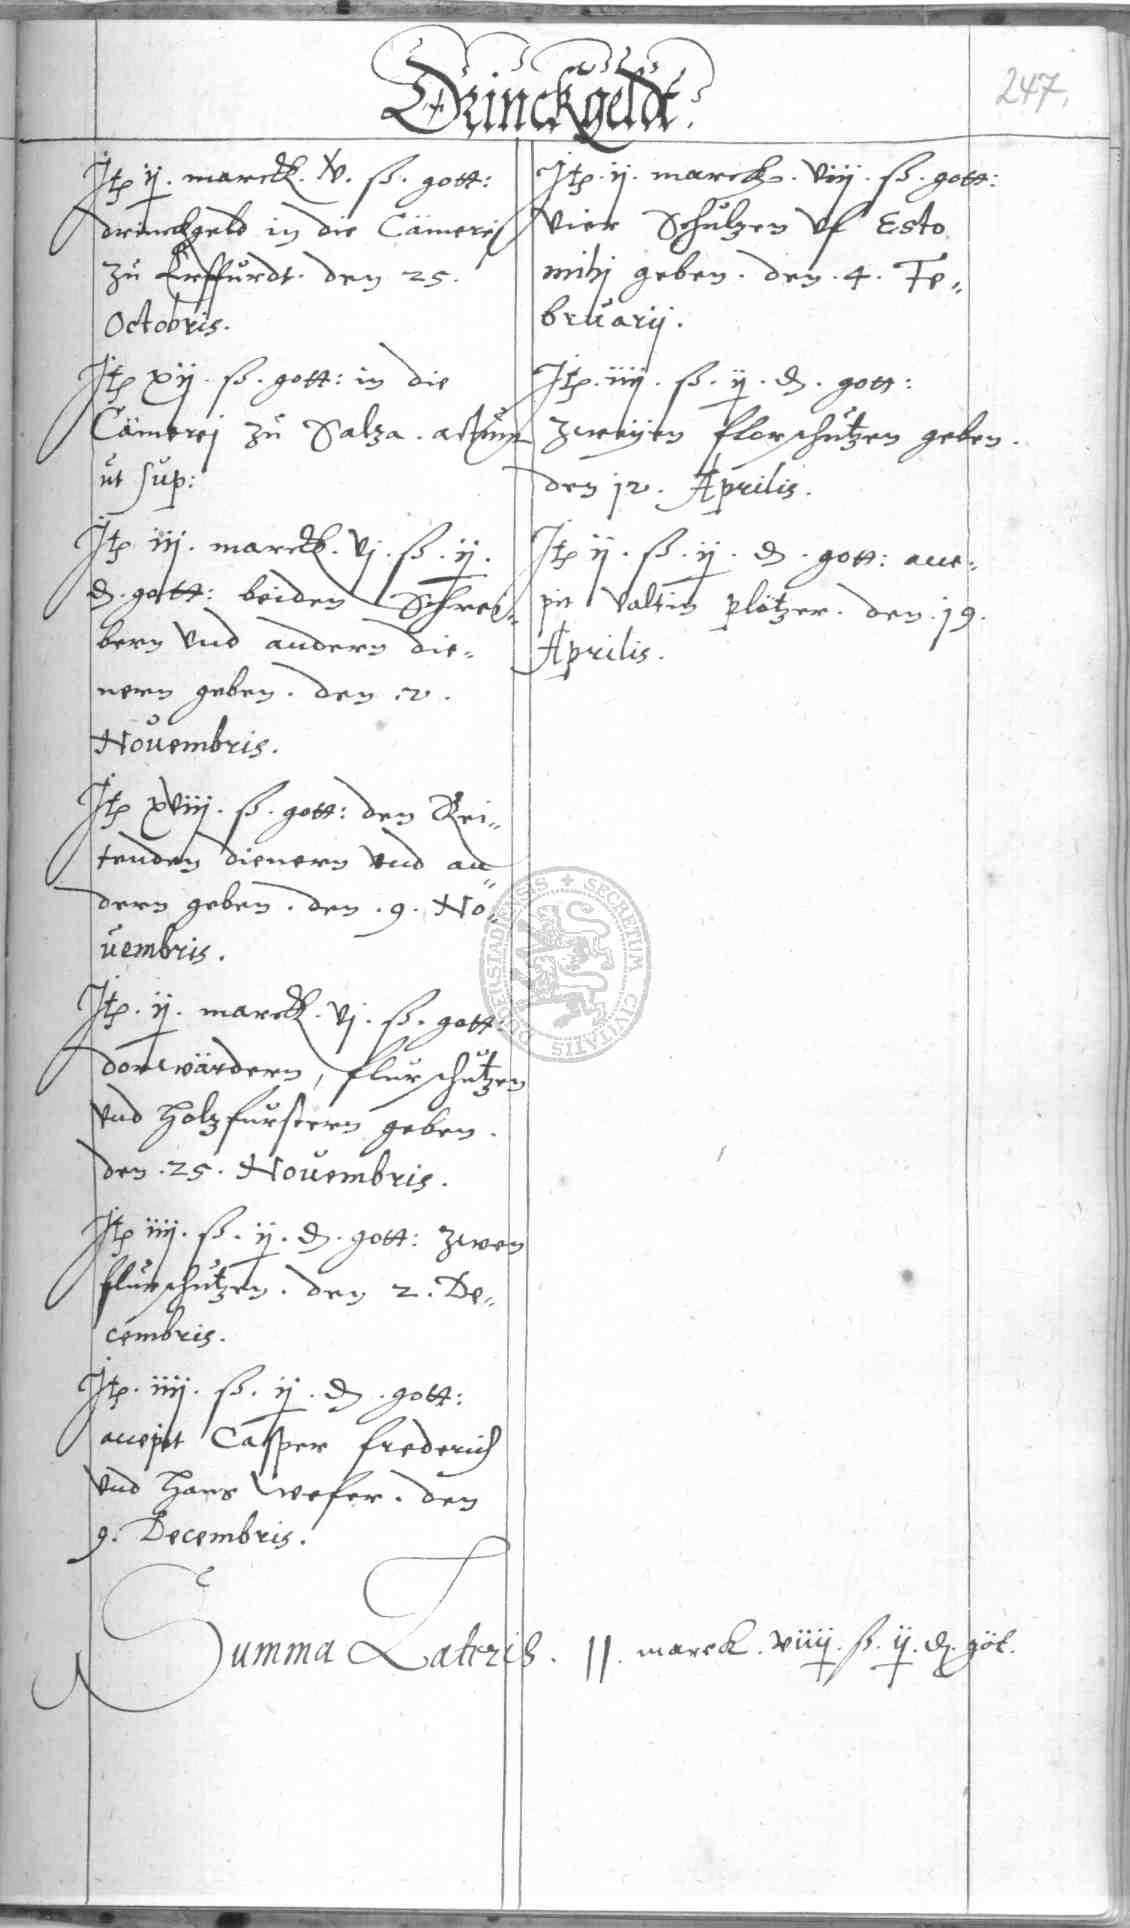 Drinckgeldt.
247.
Jtp ij. marck. xv. ß. gott:
drinckgeld in die Cämerej
zů Erffůrdt. den 25.
Octobris.
Jtp xij. ß. gott: in die
Cämerej zů Salza. actum
ut sůp:
Jtp iij. marck. vj. ß. ij.
d. gott: beiden Schrei„
bern vnd andern die„
nern geben. den .2.
Noůembris.
Jtp xviij. ß. gott: den Rei„
tenden dienern vnd an„
dern geben. den .9. No„
ůembris.
Jtp. ij. marck. vj. ß. gott:
dorwärdern, flůrschůtzen
vnd holzfůrstern geben.
den .25. Noůembris.
Jtp iiij. ß. ij. d. gott: zwen
flůrschůtzen. den 2. De„
cembris.
Jtp. iiij. ß. ij. d. gott:
accepit Casper frederich
vnd Hans wefer. den
9. Decembris.
Jtp. ij. marck. viij. ß. gott:
vier Schůtzen vf Esto
mihj geben. den .4. Fe„
brůarij.
Jtp. iiij. ß. ij. d. gott:
zweyen florschůtzen geben.
den 12. Aprilis.
Jtp ij. ß. ij. d. gott: acce„
pit valtin plötzer. den .19.
Aprilis.
Summa Lateris. 11. marck. viiij. ß. ij. d. göt.
SECRETUM CIVITATIS DUDERSTADIENSIS